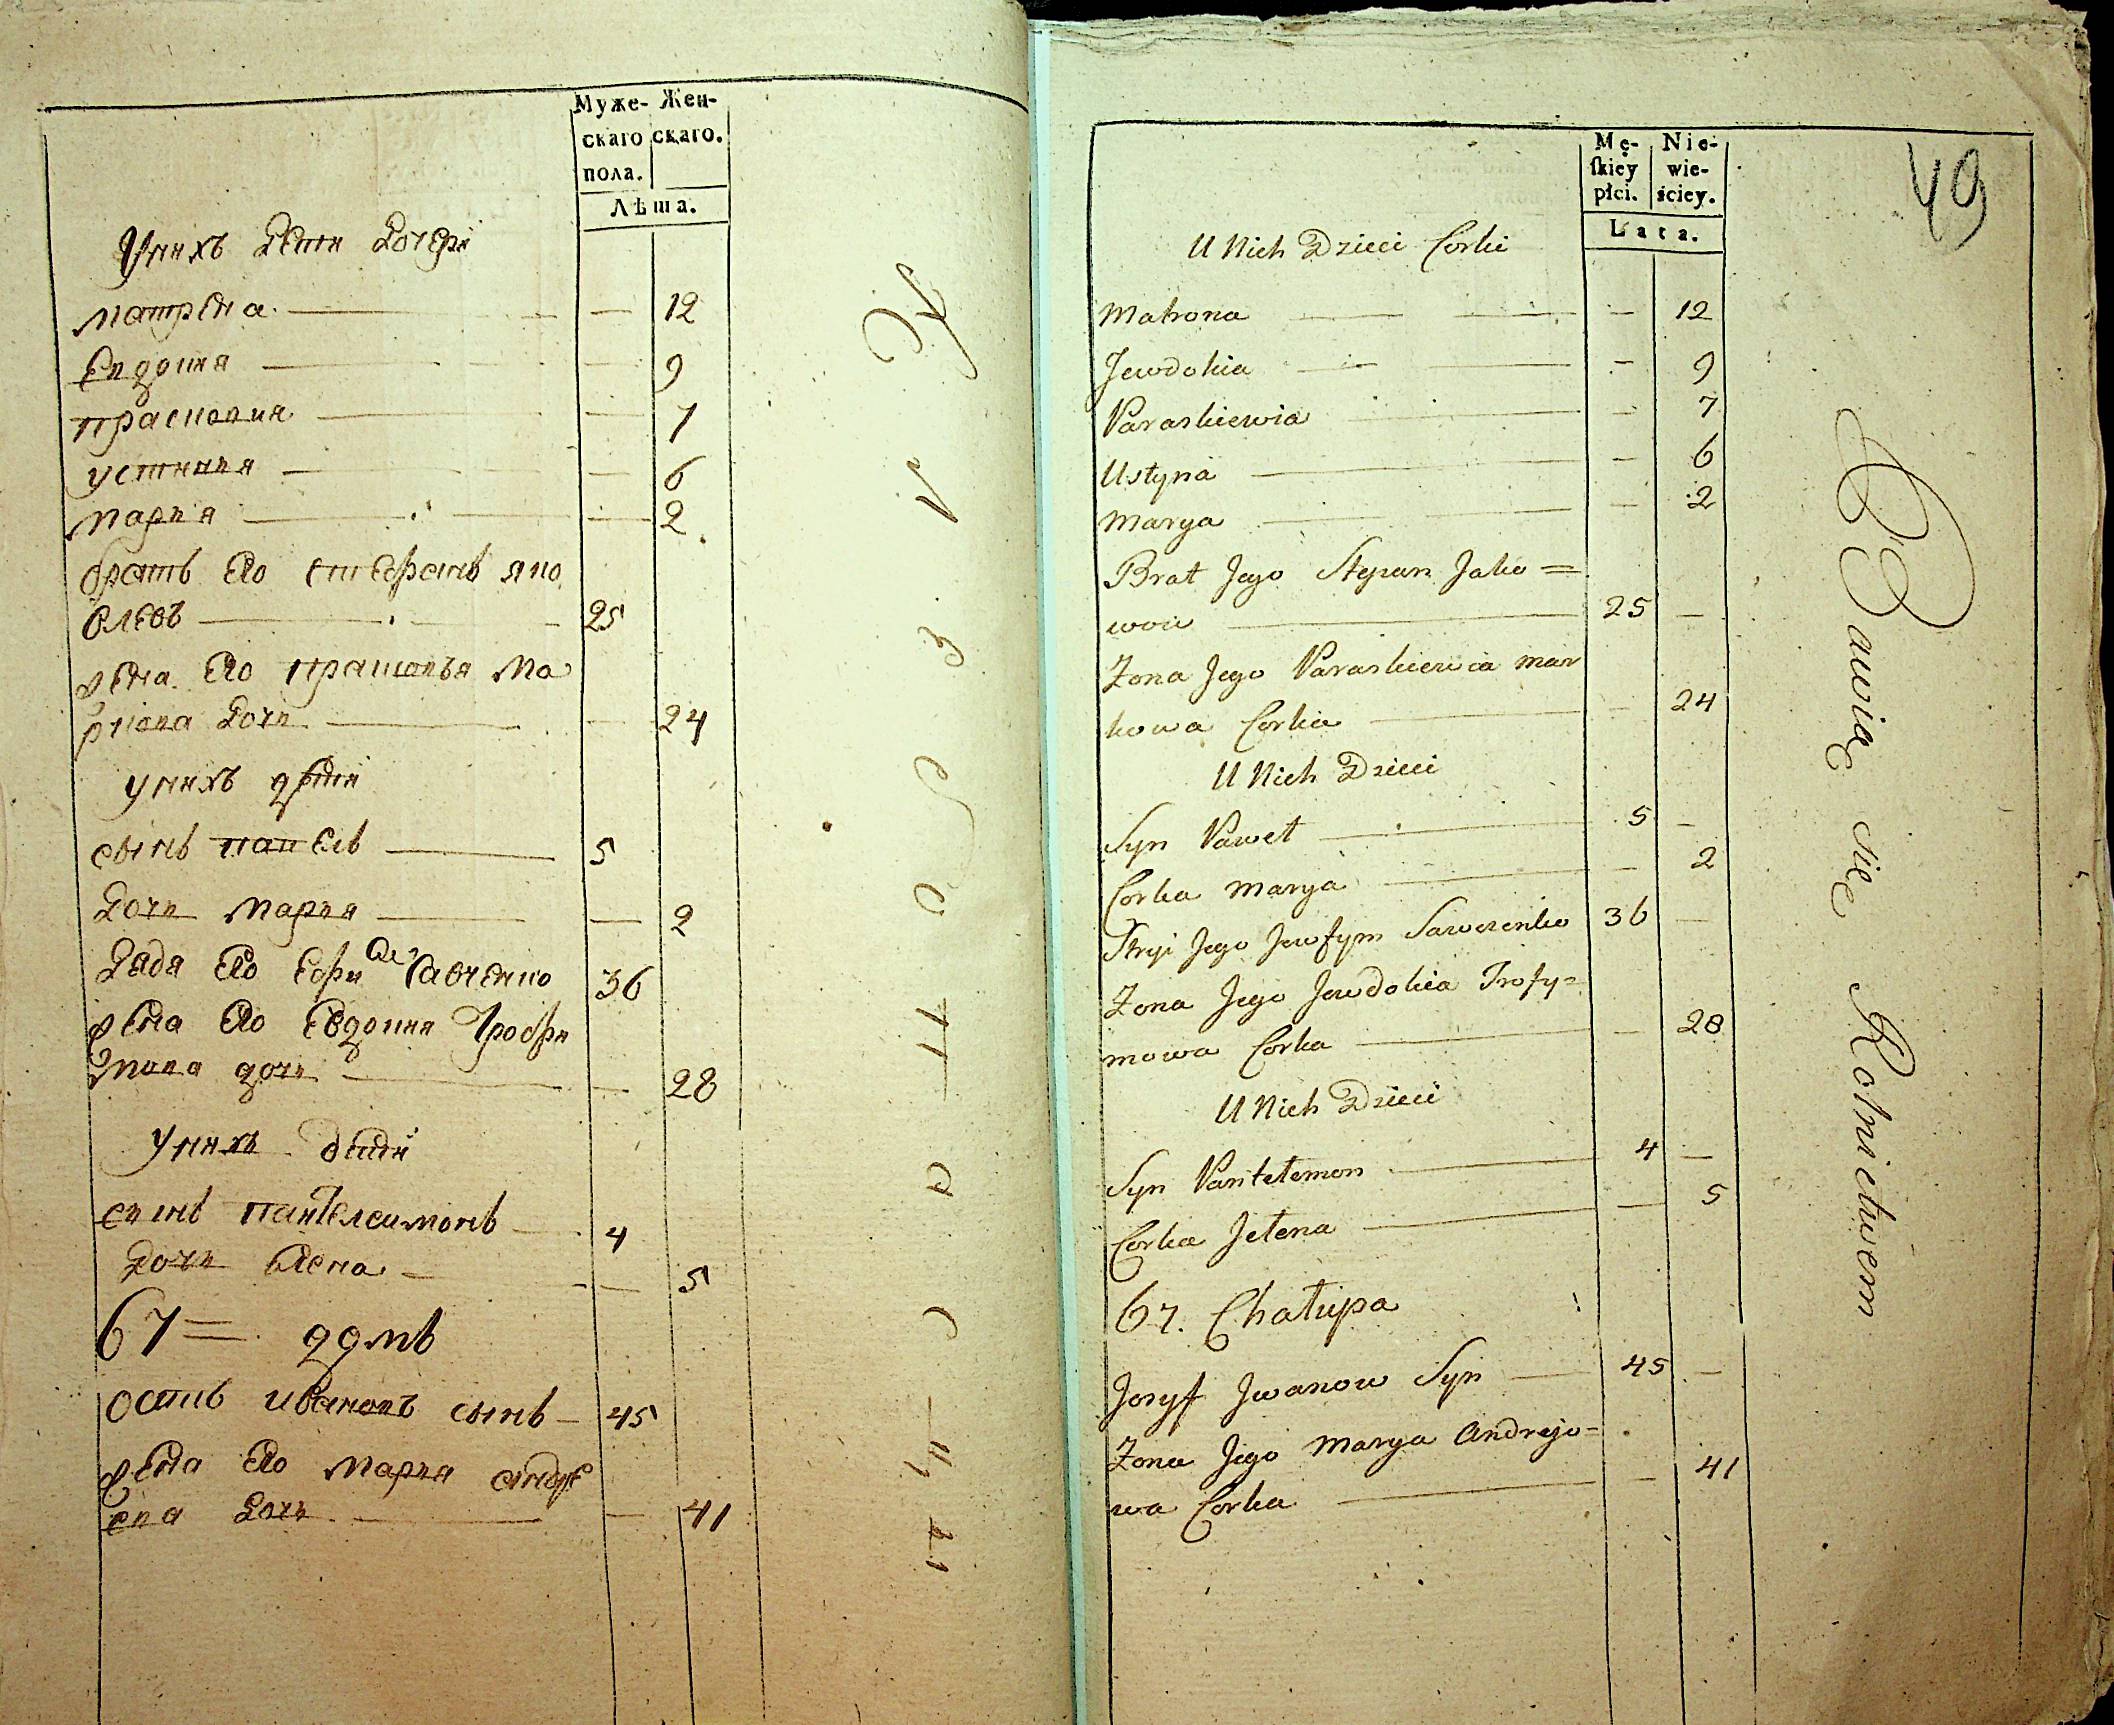 Муже- Жен-
скаго скаго.
пола.
Лѣта.
У нихъ дети дочери
Матрена — 12
Евдокия — 9
Прасковия — 7
Устиния — 6
Мария — 2
братъ Его Стефанъ яко
влевъ — 25
жена Его Прасковья Ма
ркова дочи — 24
у нихъ дети
сынъ Павелъ — 5
дочи Мария — 2
дядя Его Ефи Савченко 36
жена Его Евдокия Трофи
мова дочи — 28
у нихъ дети
сынъ Пантелеимонъ — 4
дочи Елена — 5
67 = домъ
Осипъ Ивановъ сынъ — 45
жена Его Мария андре
ева дочи — 41
49
Mę- Nie-
skiey wie-
płci. ściey.
Lata.
U Nich Dzieci Corki
Matrona — 12
Jewdokia — 9
Paraskiewia — 7
Ustyna — 6
Marya — 2
Brat Jego Stepan Jako=
wow — 25 —
Zona Jego Paraskiewia Mar
kowa Corka — 24
U Nich Dzieci
Syn Paweł — 5 —
Corka Marya — 2
Stryi Jego Jewfym Sawczenko 36 —
Zona Jego Jewdokia Trofy=
mowa Corka — 28
U Nich Dzieci
Syn Pantełemon — 4 —
Corka Jełena — 5
67. Chałupa
Jozyf Jwanow Syn — 45 —
Zona Jego Marya Andrejo=
wa Corka — 41
Bawią się Rolnictwem